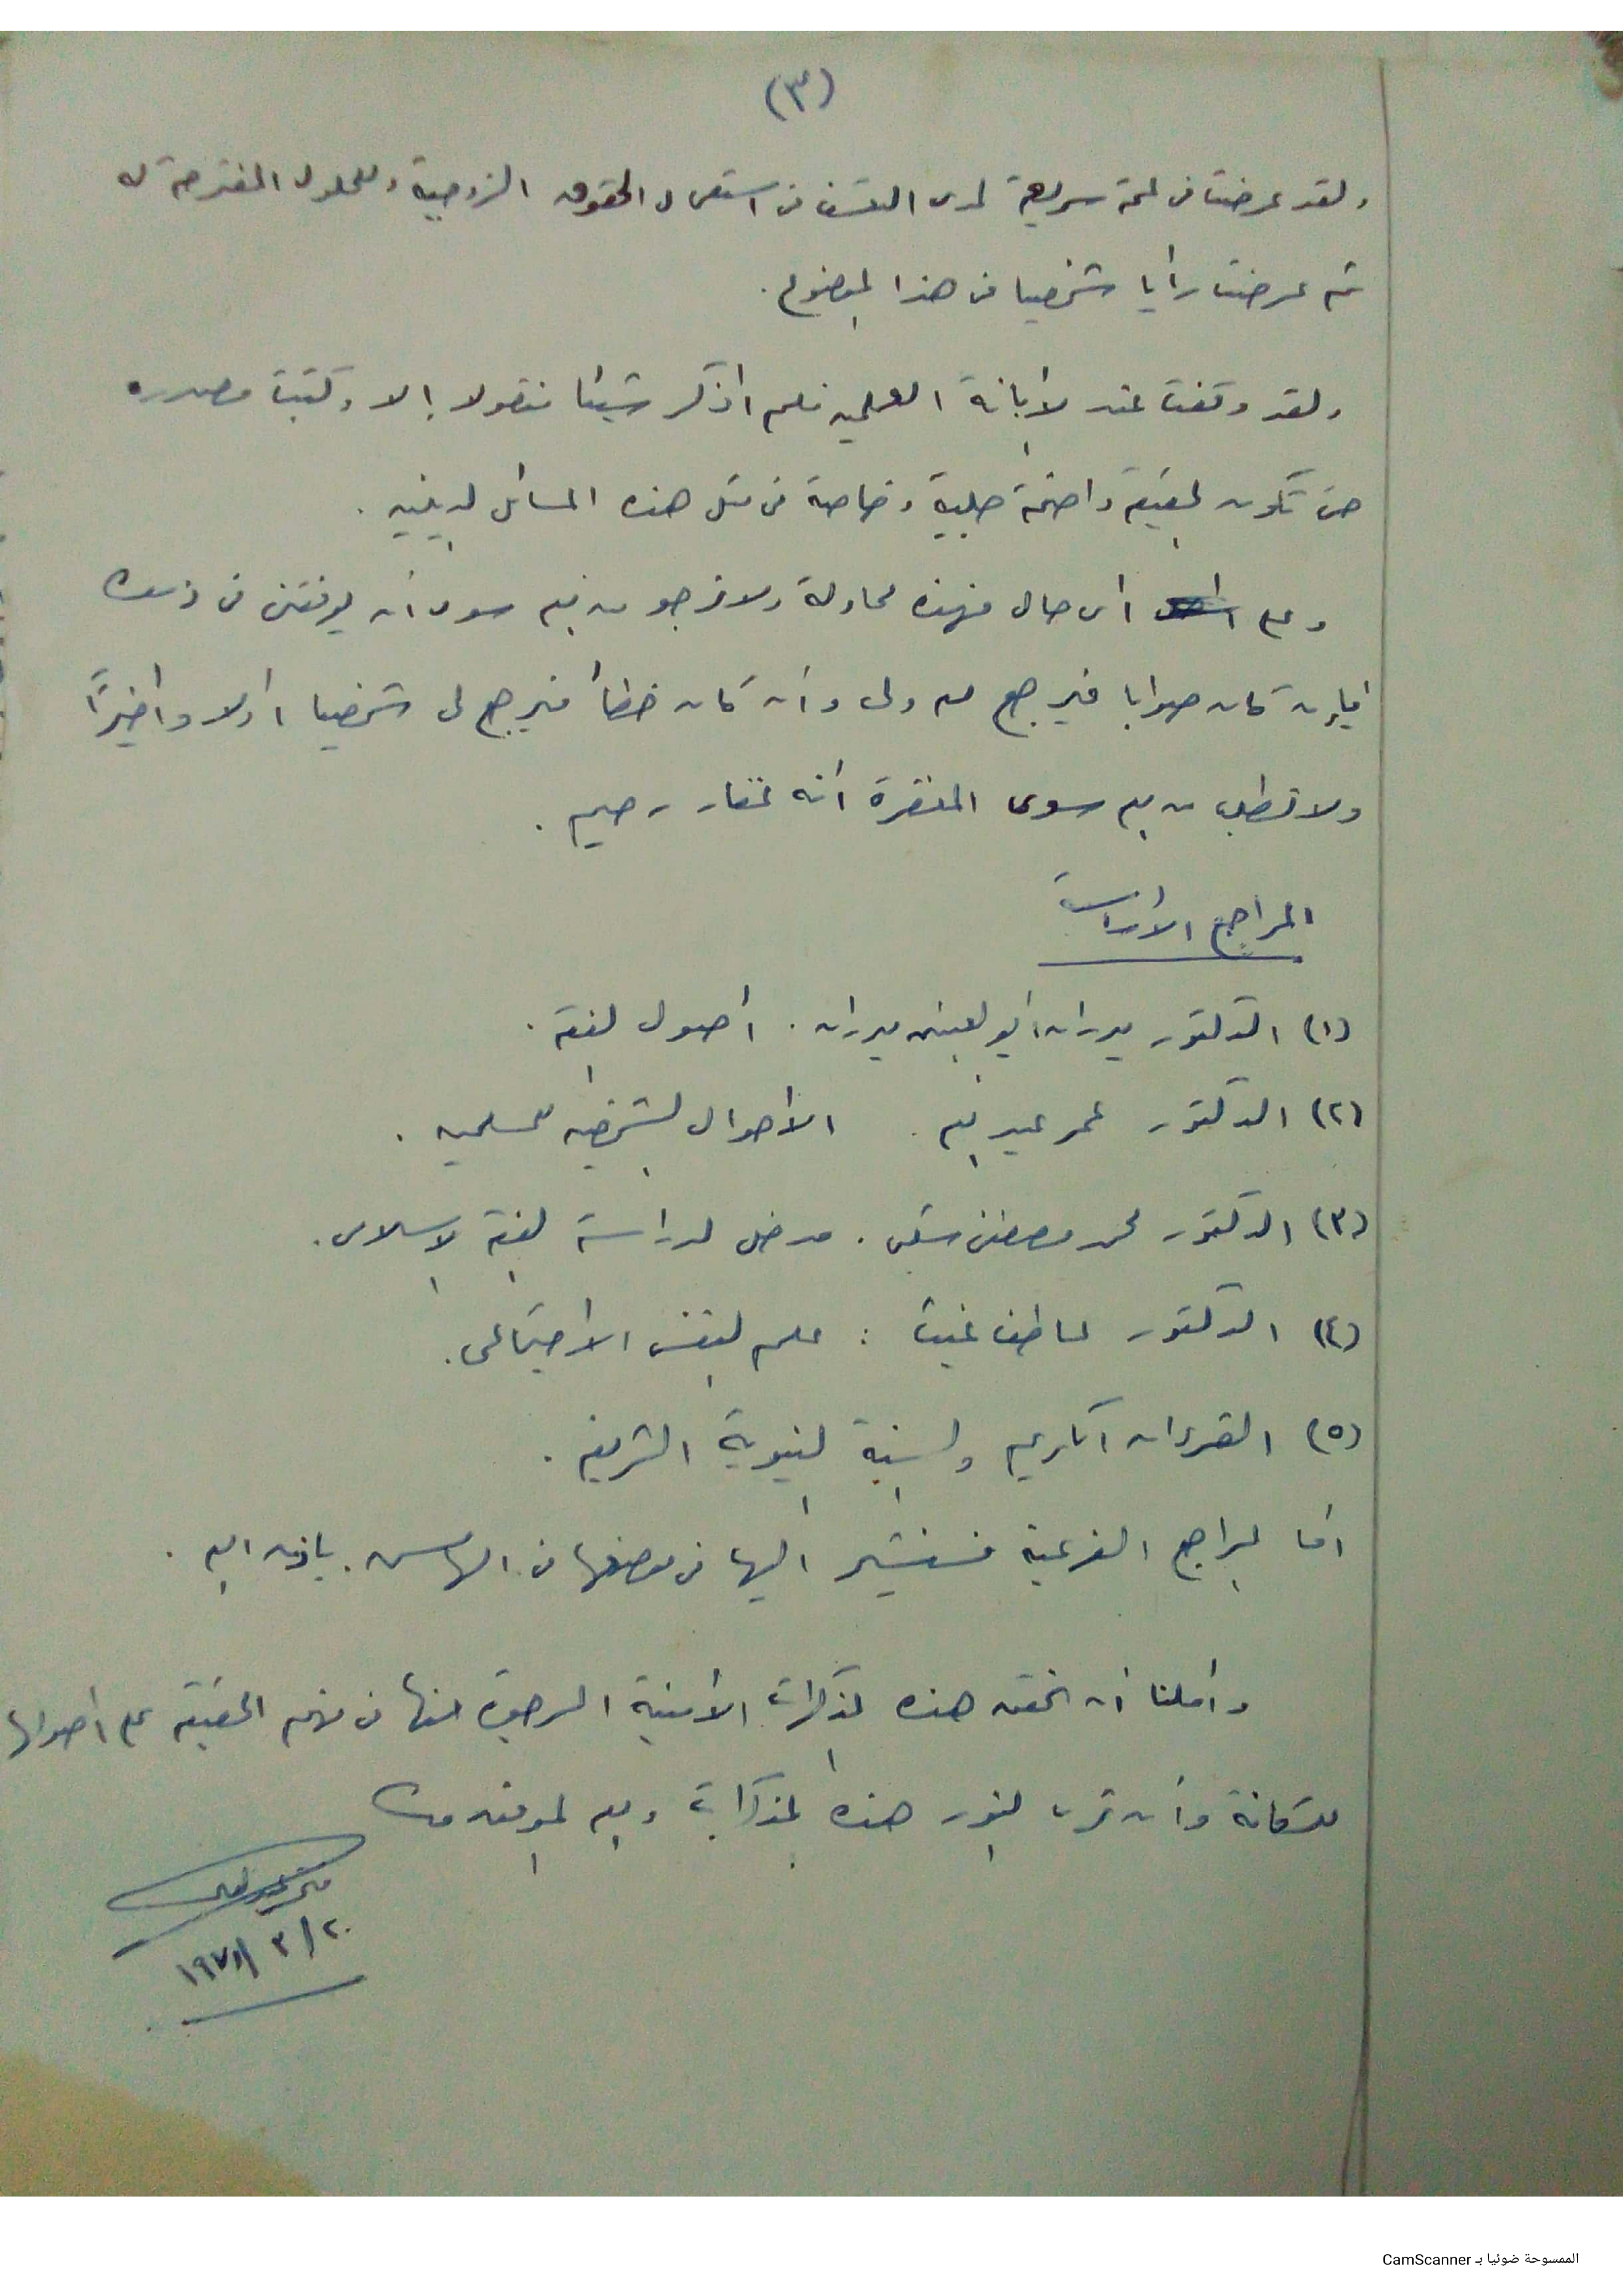 (٣)
ولقد عرضت فى لمحة سريعة لمدى التعسف فى استعمال الحقوق الزوجية والحلول المقترحة له
ثم عرضت رأيا شخصيا فى هذا الموضوع.
ولقد وقفت عند الأمانة العلمية فلم اذكر شيئا منقولا إلا وكتبت مصدره
حتى تكون الحقيقة واضحة جلية وخاصة فى مثل هذه المسائل الدينية.
وعلى اى حال فهذه محاولة ولا نرجو من الله سوى أن يوفقنى فى ذلك
فإن كان صوابا فيرجع لله ولى وأن كان خطأ فيرجع لى شخصيا اولا واخيراً
ولا نطلب من الله سوى المغفرة أنه غفار رحيم.
المراجع الأساسية
(١) الدكتور بدران أبو العينين بدران. أصول الفقه.
(٢) الدكتور عمر عبد الله. الأحوال الشخصية للمسلمين.
(٣) الدكتور محمد مصطفى شلبى. مدخل لدراسة الفقه الإسلامى.
(٤) الدكتور عاطف غيث: علم النفس الاجتماعى.
(٥) القرءان الكريم والسنة النبوية الشريفة.
أما المراجع الفرعية فسنشير اليها فى موضعها فى الهامش. باذن الله.
وأملنا أن تحقق هذه المذكرات الأمنية المرجوة منها فى فهم الحقيقة على أصولها
للكافة وأن ترى النور هذه المذكرات والله الموفق
٢٠/٣/
الممسوحة ضوئيا بـ CamScanner